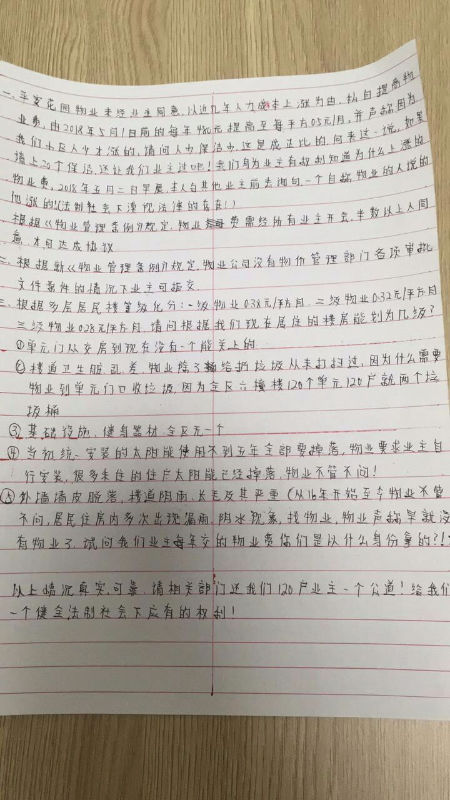 一、平安花园物业未经业主同意,以近几年人力成本上涨为由,私自提高物
业费,由2018年5月1日前的每年480元提高至每平方0.5元/月,并声称因为
我们小区人少才涨的,请问人少保洁少这是成正比的何来这一说,如果
墙上20个保洁,还让我们业主过吧!我们身为业主有权利知道为什么上涨的
物业费,2018年五月二日早晨,本人与其他业主前去询问,一个自称物业的人说的
他涨的(法制社会下漠视法律的存在!)
根据《物业管理条例》规定,物业费需经所有业主开会,半数以上人同
意,才可达成协议
二、根据新《物业管理条例》规定,物业公司没有物价管理部门各项审批
文件备案的情况下业主可拒交.
三、根据多层居民楼等级化分:一级物业0.38元/平方月.二级物业0.32元/平方月
三级物业0.28元/平方月.请问根据我们现在居住的楼房能划为几级?
①单元门从交房到现在没有一个能关上的
②楼道卫生脏,乱差,物业除了给扔垃圾从未打扫过,因为什么需要
物业到单元门口收垃圾,因为全区六幢楼120个单元120户就两个垃
圾桶
③基础设施,健身器材,全区无一个
④当初统一安装的太阳能使用不到五年全部要掉落,物业要求业主自
行安装,很多未住的住户太阳能已经掉落,物业不管不问!
⑤外墙墙皮脱落,楼道阴雨,长毛及其严重(从16年开始至今物业不管
不问,居民住房内多次出现漏雨,阴水现象,找物业,物业声称早就没
有物业了.试问我们业主每年交的物业费你们是以什么身份拿的?!)
以上情况真实可靠,请相关部门还我们120户业主一个公道!给我们
一个健全法制社会下应有的权利!